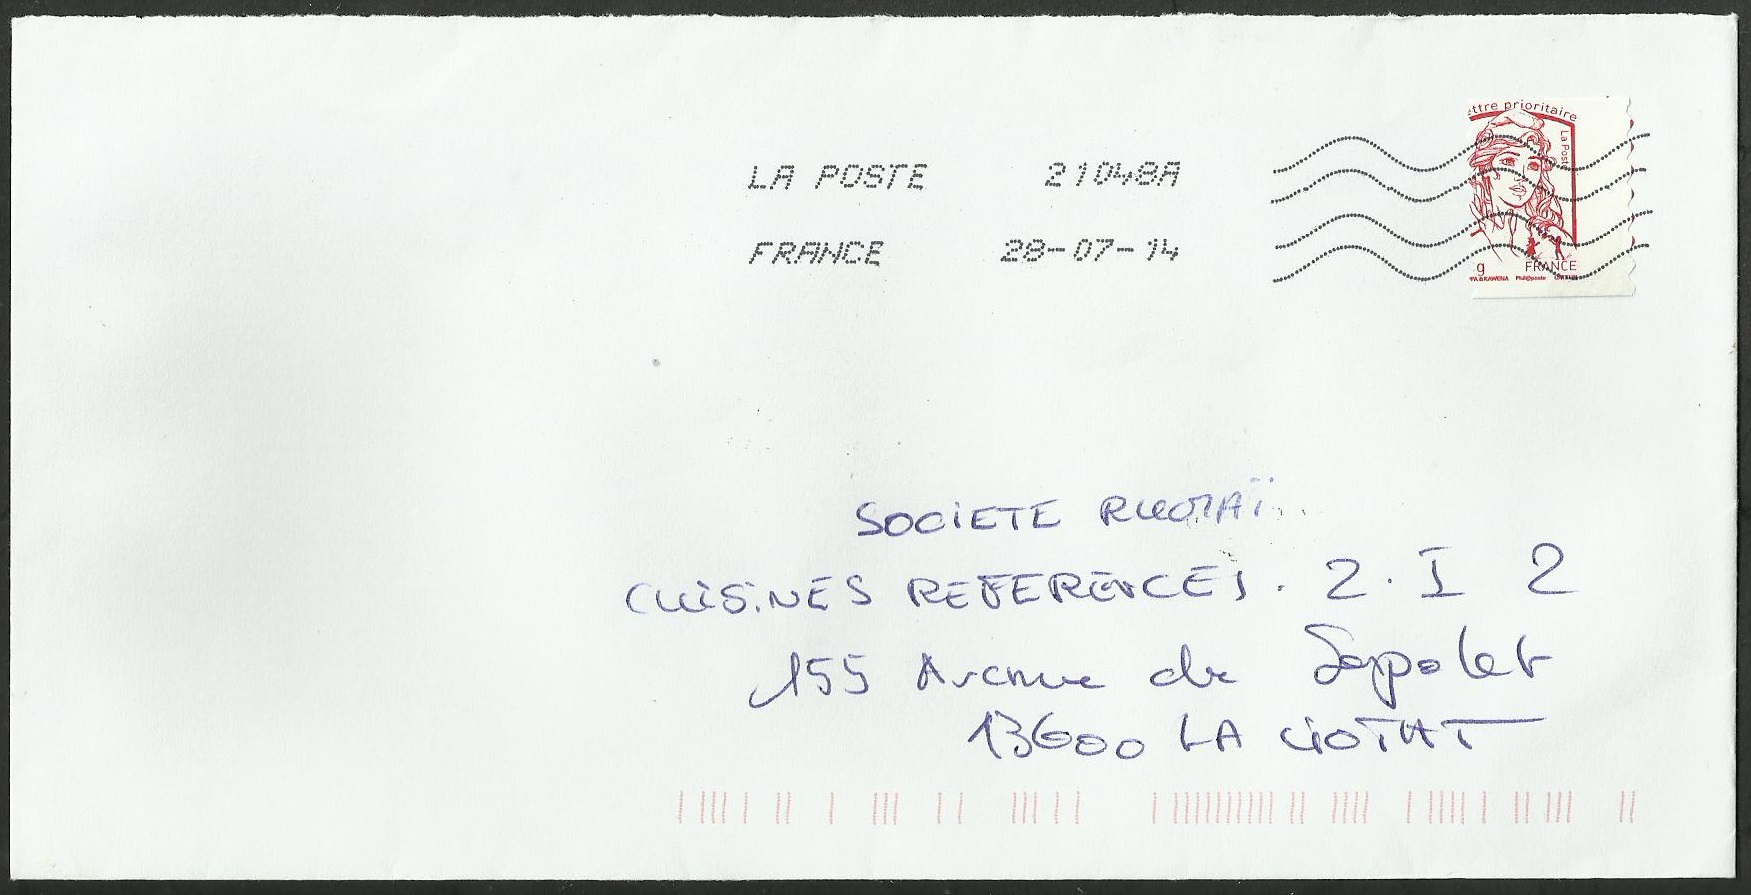 ttre prioritaire
La Poste
LA POSTE 21048A
FRANCE 28-07-14
g FRANCE
& KAWENA Phil@poste
SOCIETE
CUISINES REFERENCES. 2. I 2
155 Avenue de
13600 LA CIOTAT